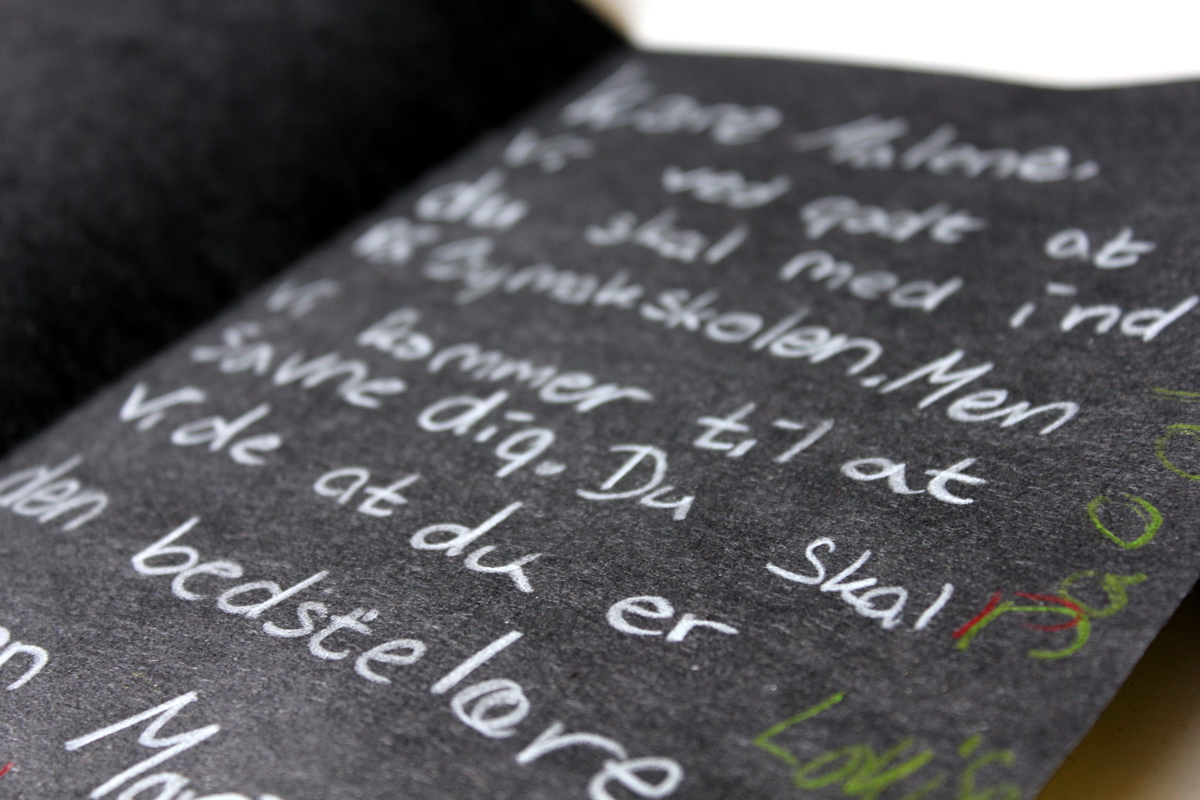 Kære Malene,
Vi ved godt at
du skal med ind
på Bymarkskolen. Men
vi kommer til at
savne dig. Du skal
vide at du er
den bedste lære
en